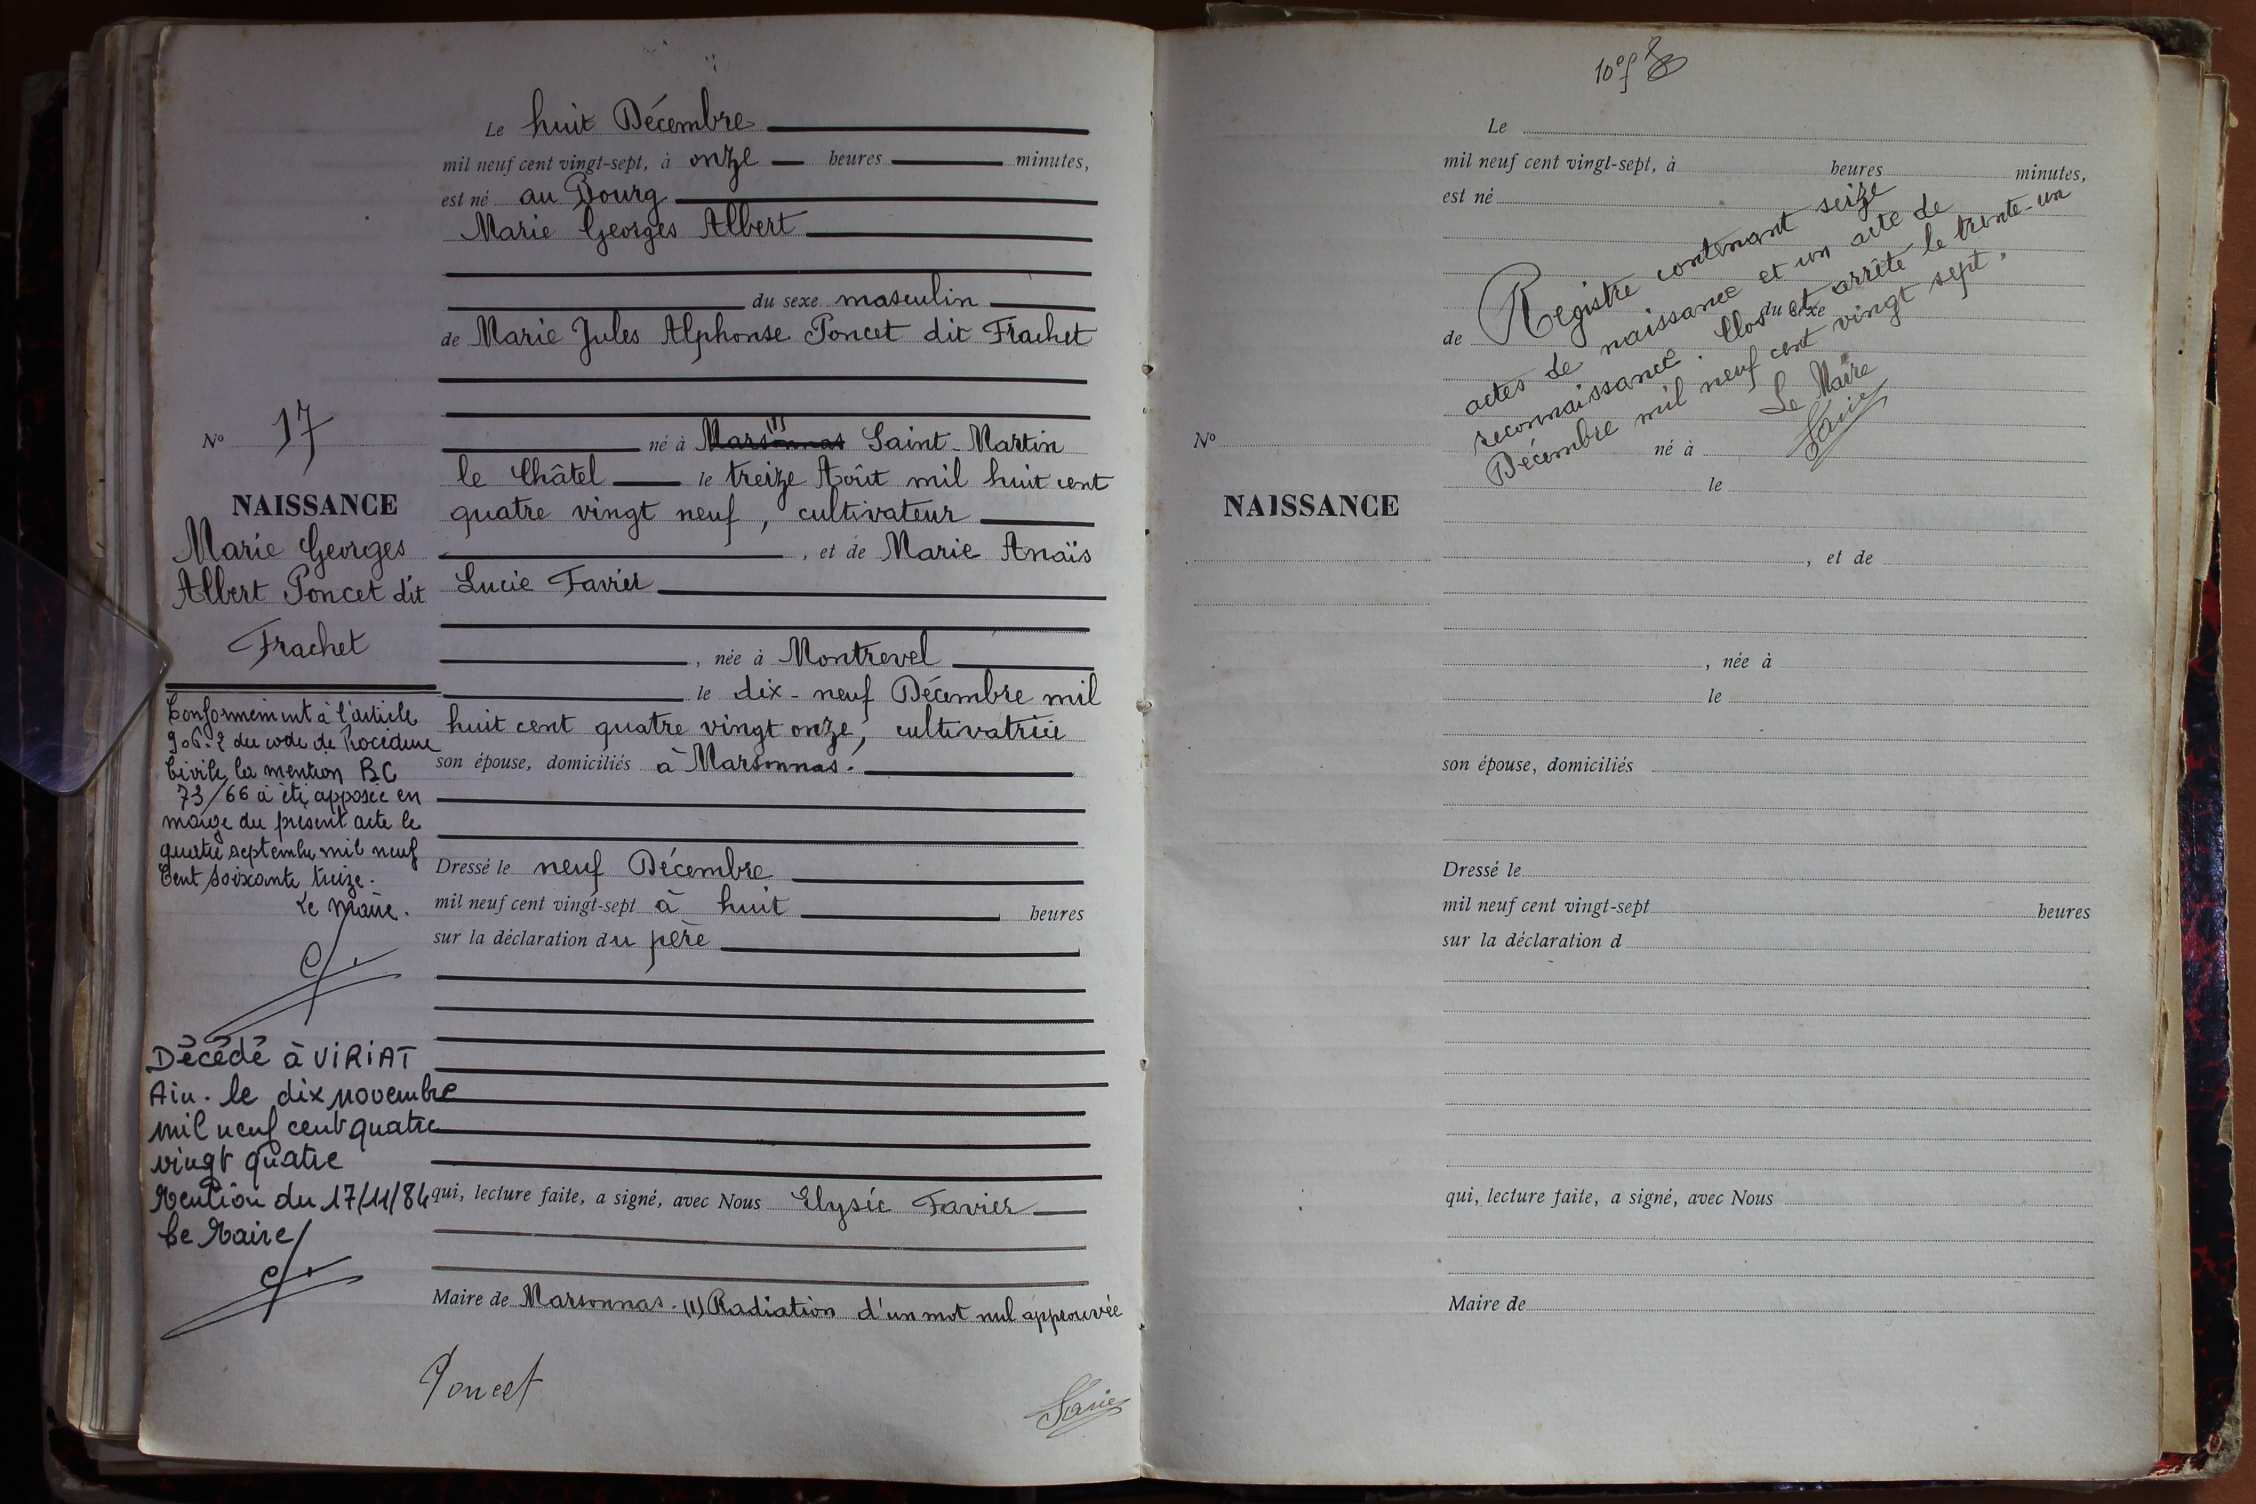 Le huit Décembre
mil neuf cent vingt-sept, à onze heures minutes,
est né au Bourg
Marie Georges Albert
du sexe masculin
de Marie Jules Alphonse Poncet dit Frachet
né à (1) Marsonnas Saint-Martin
le Châtel le treize Août mil huit cent
quatre vingt neuf, cultivateur
, et de Marie Anaïs
Lucie Favier
, née à Montrevel
le dix-neuf Décembre mil
huit cent quatre vingt onze, cultivatrice
son épouse, domiciliés à Marsonnas.
Dressé le neuf Décembre
mil neuf cent vingt-sept à huit heures
sur la déclaration du père
qui, lecture faite, a signé, avec Nous Elysée Favier
Maire de Marsonnas. (1) Radiation d'un mot nul approuvée
Poncet
Favier
No 17
NAISSANCE
Marie Georges
Albert Poncet dit
Frachet
Conformement à l'article
906.2 du code de Procedure
Civile la mention RC
73/66 a été apposée en
marge du présent acte le
quatre septembre mil neuf
Cent soixante treize.
Le Maire.
Décédé à VIRIAT
Ain. le dix novembre
mil neuf cent quatre
vingt quatre
Mention du 17/11/84
Le Maire
10e f
Le
mil neuf cent vingt-sept, à heures minutes,
est né
du sexe
de
Registre contenant seize
actes de naissance et un acte de
reconnaissance. Clos et arrêté le trente-un
Décembre mil neuf cent vingt sept.
Le Maire
Favier
No
né à
le
NAISSANCE
, et de
, née à
le
son épouse, domiciliés
Dressé le
mil neuf cent vingt-sept heures
sur la déclaration d
qui, lecture faite, a signé, avec Nous
Maire de